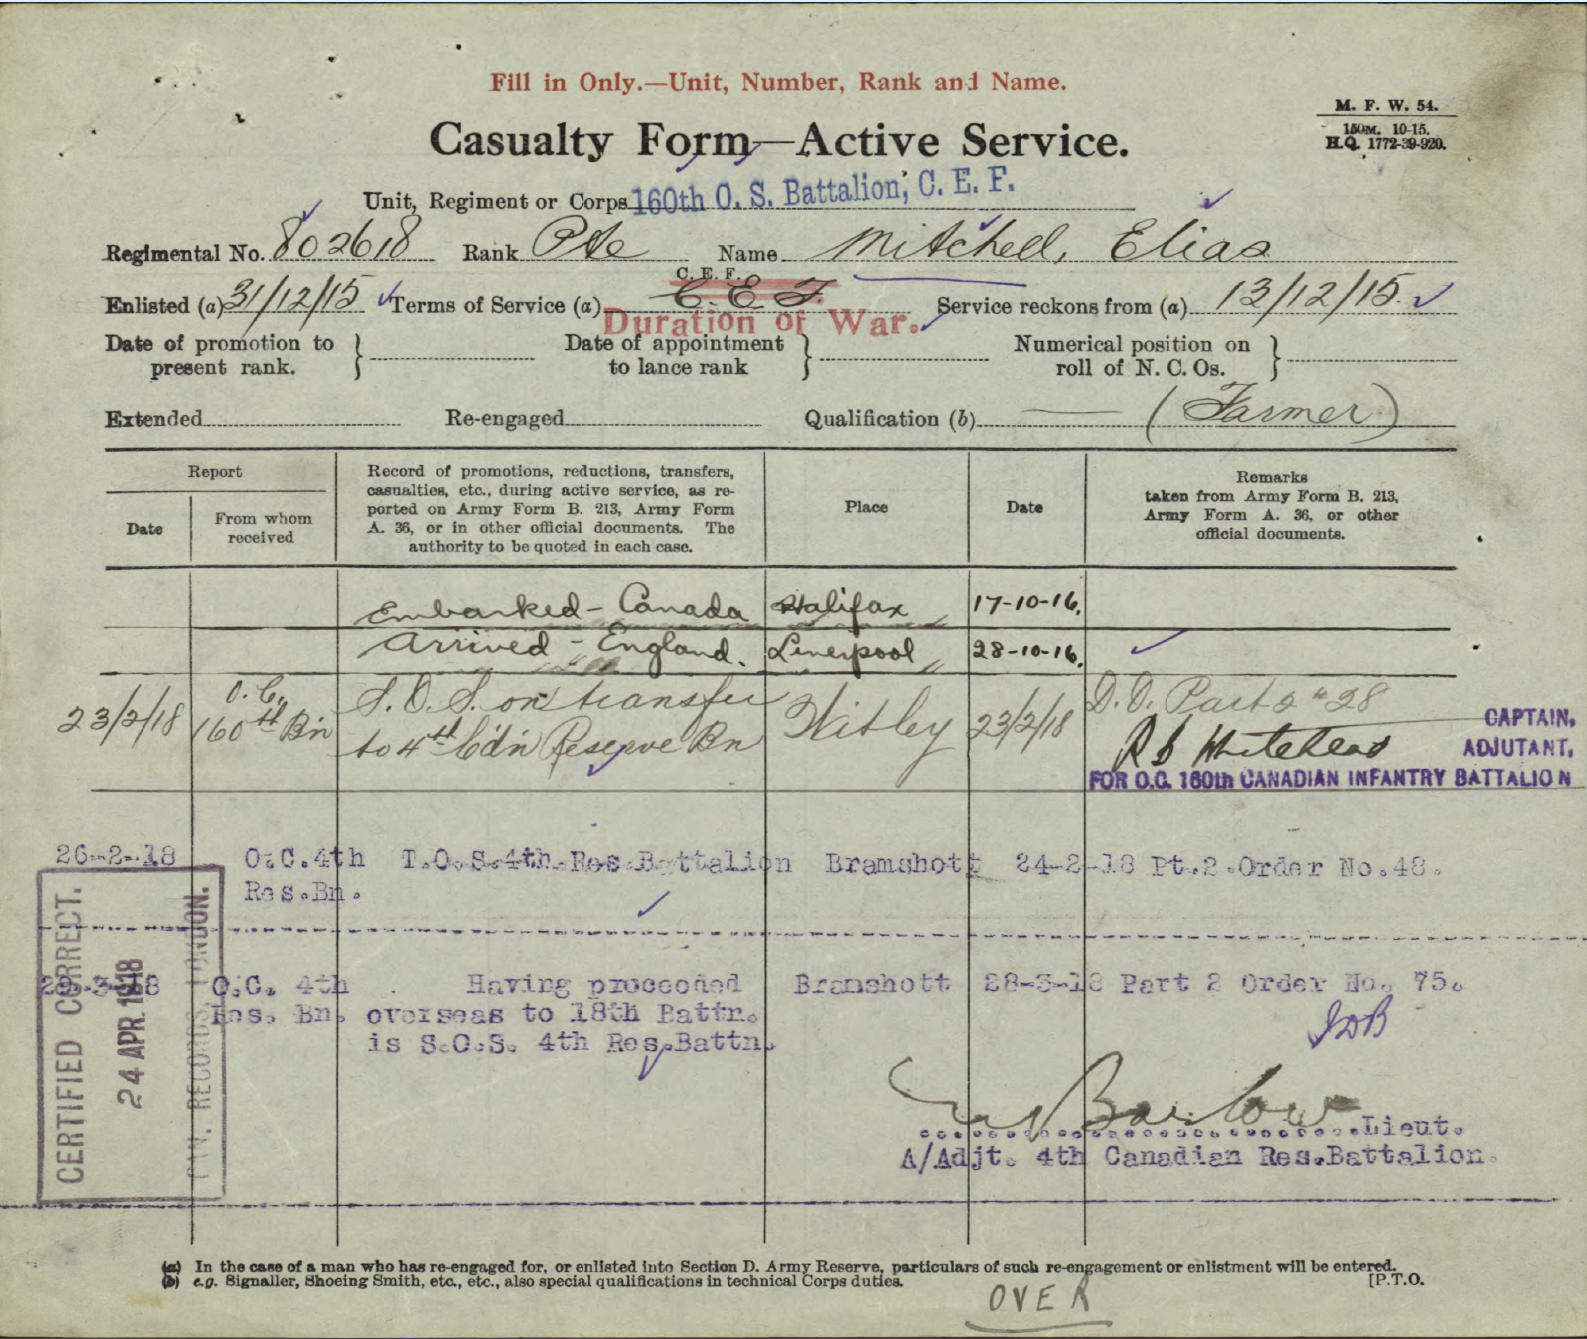 Fill in Only.—Unit, Number, Rank and Name.
M. F. W. 54.
150M. 10-15.
H.Q. 1772-39-920.
Casualty Form—Active Service.
Unit, Regiment or Corps 160th O. S. Battalion, C. E. F.
Regimental No. 802618 Rank Pte Name Mitchell, Elias
C. E. F.
Enlisted (a) 31/12/15 Terms of Service (a) C. E. F. Service reckons from (a) 13/12/15
Duration of War.
Date of promotion to present rank. } Date of appointment to lance rank } Numerical position on roll of N. C. Os. }
Extended Re-engaged Qualification (b) — (Farmer)
Report
Date
From whom received
Record of promotions, reductions, transfers,
casualties, etc., during active service, as re-
ported on Army Form B. 213, Army Form
A. 36, or in other official documents. The
authority to be quoted in each case.
Place
Date
Remarks
taken from Army Form B. 213,
Army Form A. 36, or other
official documents.
Embarked - Canada Halifax 17-10-16.
Arrived - England. Liverpool 28-10-16.
23/2/18 O.C. 160th Bn S.O.S. on transfer to 4th C'd'n Reserve Bn Witley 23/2/18 D.O. Part 2 # 28
R B Whitehead
CAPTAIN,
ADJUTANT,
FOR O.C. 160th CANADIAN INFANTRY BATTALION
26-2-18 O.C.4th T.O.S.4th.Res.Battalion Bramshott 24-2-18 Pt.2.Order No.48.
Res.Bn.
CERTIFIED CORRECT.
24 APR. 1918
CAN. RECORDS, LONDON.
-3-18 O.C. 4th Having proceeded Bramshott 28-3-18 Part 2 Order No. 75.
Res. Bn. overseas to 18th Battn.
is S.O.S. 4th Res.Battn.
Barlow Lieut.
A/Adjt. 4th Canadian Res.Battalion.
(a) In the case of a man who has re-engaged for, or enlisted into Section D. Army Reserve, particulars of such re-engagement or enlistment will be entered.
(b) e.g. Signaller, Shoeing Smith, etc., etc., also special qualifications in technical Corps duties.
[P.T.O.
OVER